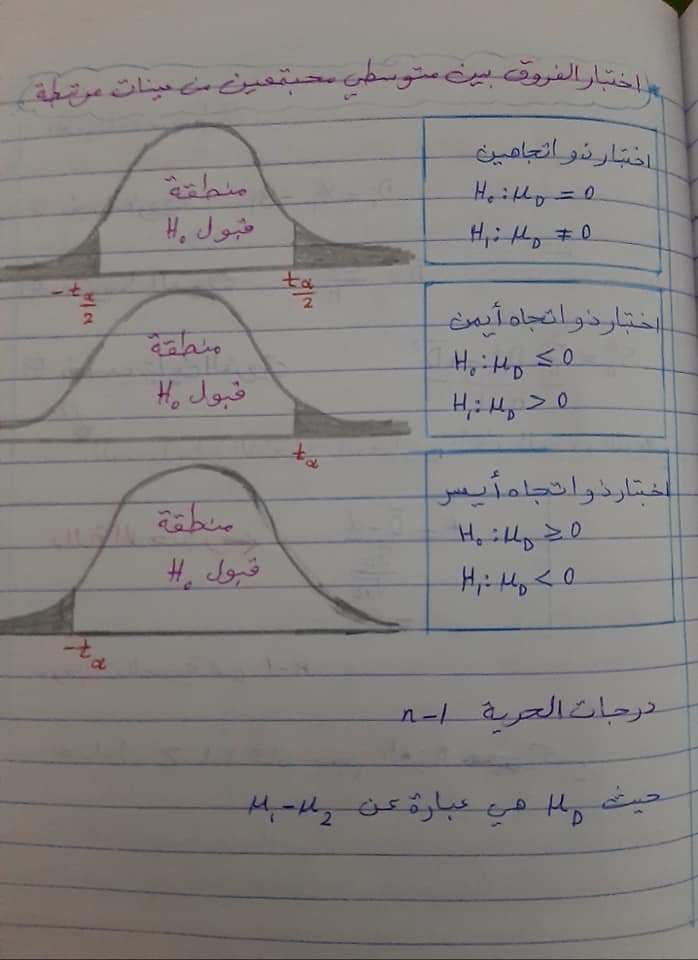 اختبار الفروق بين متوسطي مجتمعين من عينات مرتبطة
اختبار ذو اتجاهين
H₀: μ_D = 0
H₁: μ_D ≠ 0
منطقة
قبول H₀
-t_α/2
t_α/2
اختبار ذو اتجاه أيمن
H₀: μ_D ≤ 0
H₁: μ_D > 0
منطقة
قبول H₀
t_α
اختبار ذو اتجاه أيسر
H₀: μ_D ≥ 0
H₁: μ_D < 0
منطقة
قبول H₀
-t_α
درجات الحرية n-1
حيث μ_D هي عبارة عن μ₁-μ₂